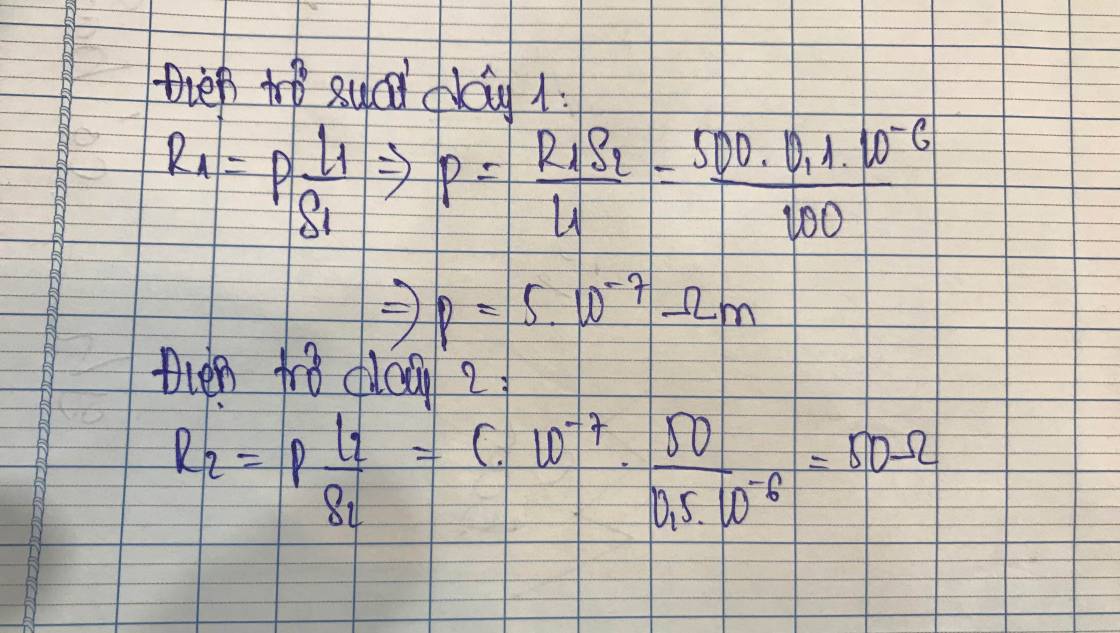 Điện trở suất dây 1:
R1 = p l1/S1 => p = R1S2/l1 = 500. 0,1. 10^-6/100
=> p = 5. 10^-7 Ωm
Điện trở dây 2:
R2 = p l2/S2 = 5. 10^-7 . 50/0,5. 10^-6 = 50Ω